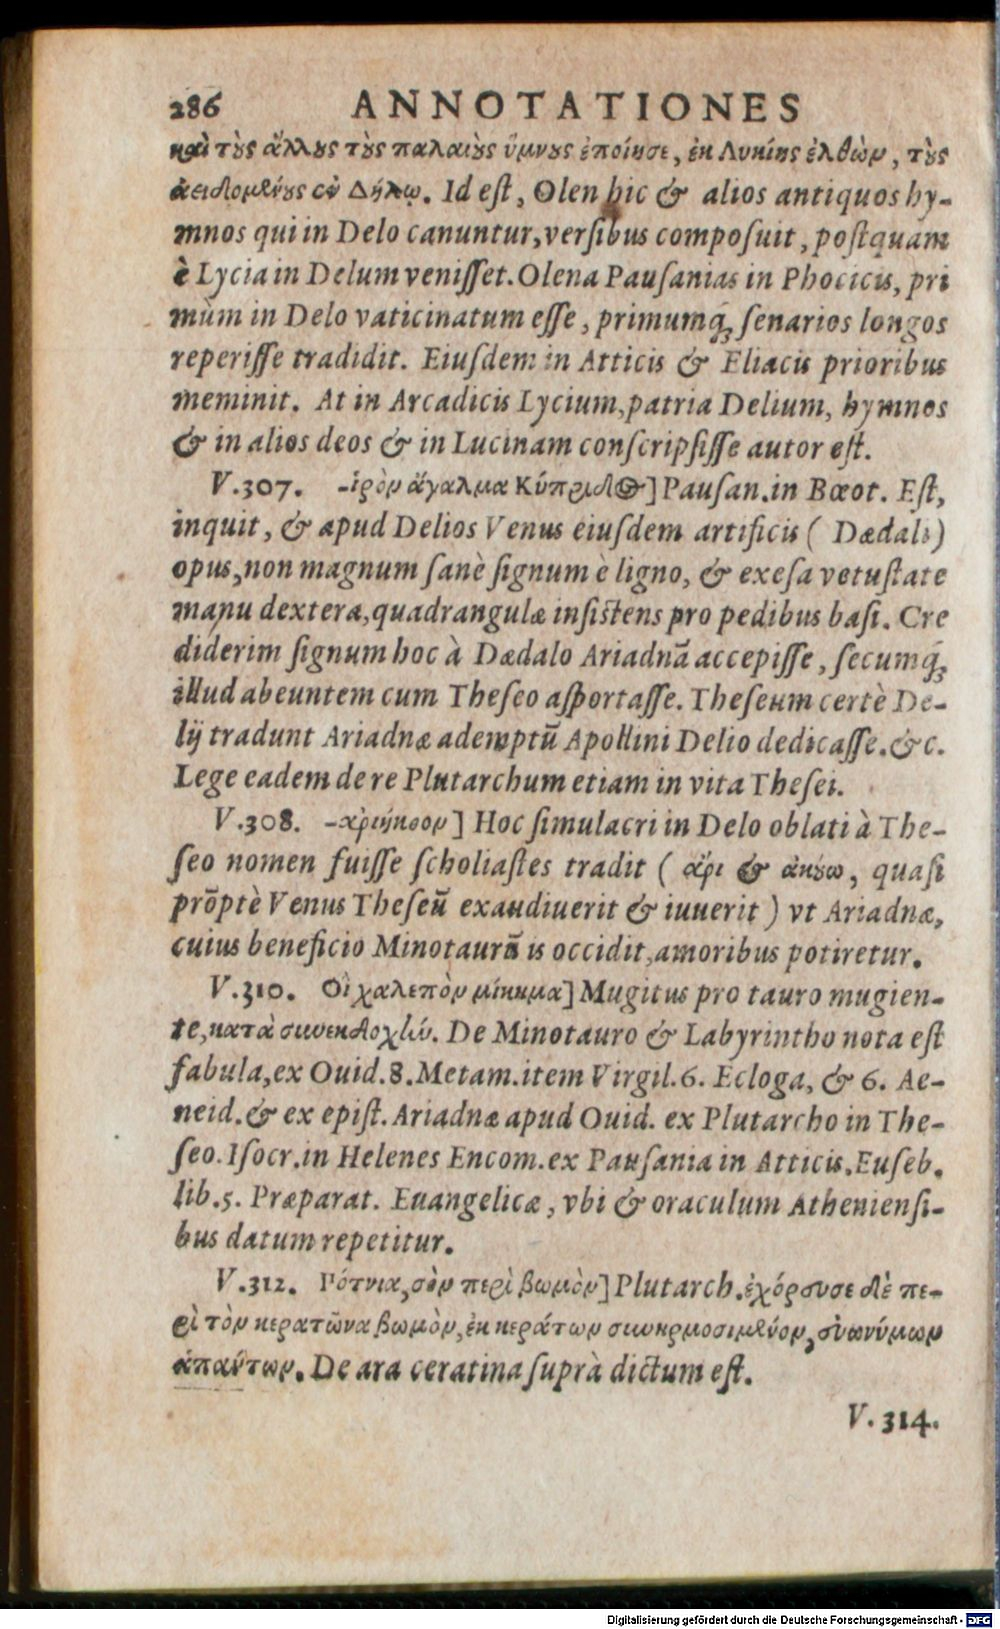 286 ANNOTATIONES
καὶ τὸς ἄλλȣς τὸς παλαιὸς ὕμνȣς ἐποίησε, ἐκ Λυκίης ἐλθὼν, τὸς
ἀειδομλύȣς ἐν Δήλῳ. Id eſt, Olen hic & alios antiquos hy-
mnos qui in Delo canuntur, verſibus compoſuit, poſtquam
è Lycia in Delum veniſſet. Olena Pauſanias in Phocicis, pri
mùm in Delo vaticinatum eſſe, primumq́; ſenarios longos
reperiſſe tradidit. Eiuſdem in Atticis & Eliacis prioribus
meminit. At in Arcadicis Lycium, patria Delium, hymnos
& in alios deos & in Lucinam conſcripſiſſe autor eſt.
V.307. -ἱρὸν ἄγαλμα Κύπριδος] Pauſan. in Bœot. Eſt,
inquit, & apud Delios Venus eiuſdem artificis ( Dædali)
opus, non magnum ſanè ſignum è ligno, & exeſa vetuſtate
manu dextera, quadrangulæ inſiſtens pro pedibus baſi. Cre
diderim ſignum hoc à Dædalo Ariadnã accepiſſe, ſecumq́;
illud abeuntem cum Theſeo aſportaſſe. Theſeum certè De-
lij tradunt Ariadnæ ademptũ Apollini Delio dedicaſſe. &c.
Lege eadem de re Plutarchum etiam in vita Theſei.
V.308. -αριήκοον ] Hoc ſimulacri in Delo oblati à The-
ſeo nomen fuiſſe ſcholiaſtes tradit ( ἄρι & ἀκȣ́ω, quaſi
prõptè Venus Theſeũ exaudiuerit & iuuerit ) vt Ariadnæ,
cuius beneficio Minotaurũ is occidit, amoribus potiretur.
V.310. Οἱ χαλεπὸν μύκημα] Mugitus pro tauro mugien-
te, κατὰ συνεκδοχὴν. De Minotauro & Labyrintho nota eſt
fabula, ex Ouid. 8. Metam. item Virgil. 6. Ecloga, & 6. Ae-
neid. & ex epiſt. Ariadnæ apud Ouid. ex Plutarcho in The-
ſeo. Iſocr. in Helenes Encom. ex Pauſania in Atticis. Euſeb.
lib. 5. Præparat. Euangelicæ, vbi & oraculum Athenienſi-
bus datum repetitur.
V.312. Πότνια, σὸν περὶ βωμὸν] Plutarch. ἐχόρευσε δὲ πε-
ρὶ τὸν κερατῶνα βωμὸν, ἐκ κεράτων συνηρμοσμένον, εὐωνύμων
ἁπάντων. De ara ceratina ſuprà dictum eſt.
V. 314.
Digitalisierung gefördert durch die Deutsche Forschungsgemeinschaft - DFG